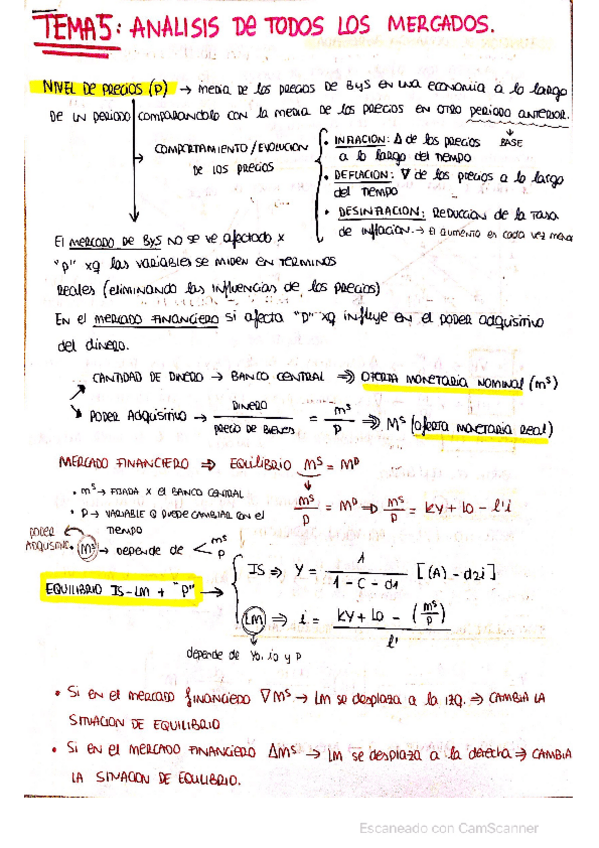 TEMA 5: ANALISIS DE TODOS LOS MERCADOS.
NIVEL DE PRECIOS (P) → MEDIA DE LOS PRECIOS DE BYS EN UNA ECONOMIA A LO LARGO
DE UN PERIODO COMPARANDOLO CON LA MEDIA DE LOS PRECIOS EN OTRO PERIODO ANTERIOR.
BASE
→ COMPORTAMIENTO / EVOLUCION
DE LOS PRECIOS
• INFLACION: Δ de los precios
a lo largo del tiempo
• DEFLACION: ∇ de los precios a lo largo
del tiempo
• DESINFLACION: REDUCCION de la TASA
de inflacion. → El aumento es cada vez menor
El MERCADO DE BYS NO SE VE AFECTADO x
"P" xq las VARIABLES SE MIDEN EN TERMINOS
REALES (ELIMINANDO las INFLUENCIAS DE LOS PRECIOS)
EN El MERCADO FINANCIERO SI afecta "P" xq INFLUYE EN el PODER ADQUISITIVO
del DINERO.
CANTIDAD DE DINERO → BANCO CENTRAL ⇒ OFERTA MONETARIA NOMINAL (mˢ)
PODER ADQUISITIVO → DINERO / PRECIO DE BIENES = mˢ / P ⇒ Mˢ (OFERTA MONETARIA REAL)
MERCADO FINANCIERO ⇒ EQUILIBRIO Mˢ = Mᴰ
• mˢ → FIJADA x El BANCO CENTRAL
mˢ / P = Mᴰ ⇒ mˢ / P = KY + L0 - l'i
• P → VARIABLE Q PUEDE CAMBIAR EN el
TIEMPO
PODER ADQUISIT. ← Mˢ → DEPENDE de < mˢ P
EQUILIBRIO IS-LM + "P" →
IS ⇒ Y = 1 / 1 - C - d1 [(A) - d2i]
LM ⇒ i = KY + L0 - (mˢ / P) / l'
depende de Yo, io y P
• Si en el MERCADO FINANCIERO ∇ Mˢ → LM se desplaza a la IZQ. ⇒ CAMBIA LA
SITUACION DE EQUILIBRIO
• Si en el MERCADO FINANCIERO ΔMˢ → LM se desplaza a la derecha ⇒ CAMBIA
LA SITUACION DE EQUILIBRIO.
Escaneado con CamScanner